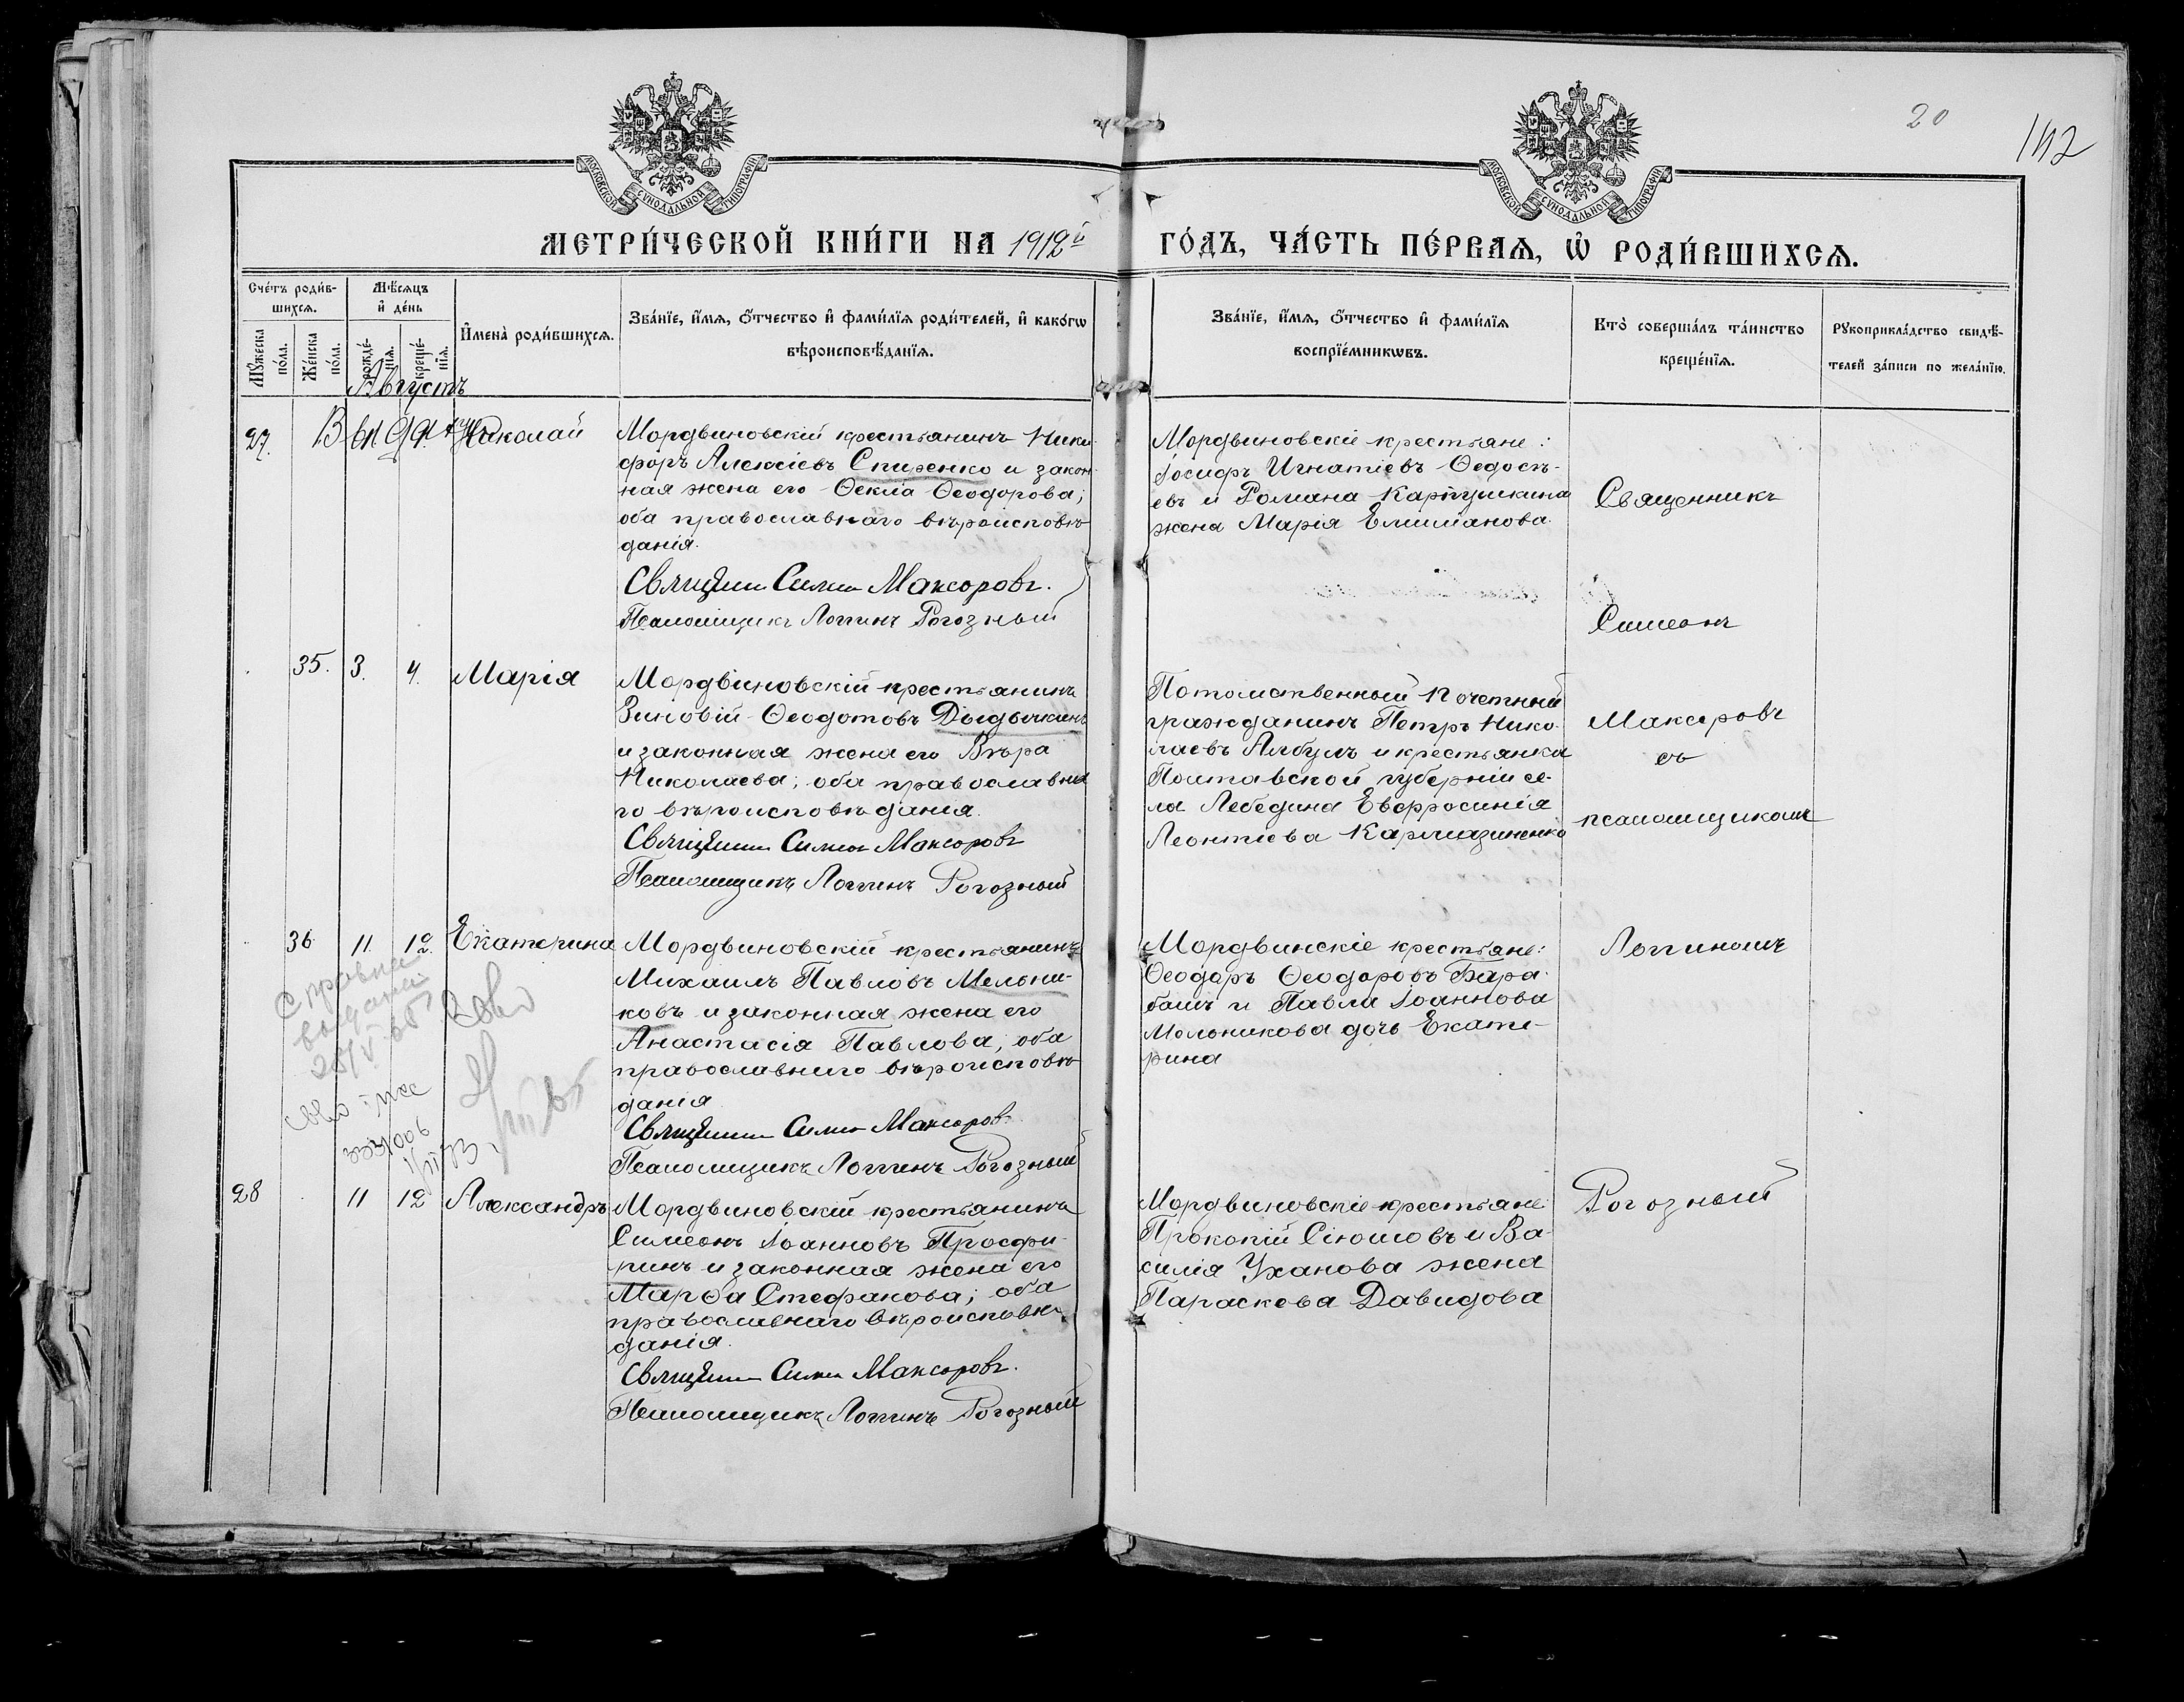 20
142
МОСКОВСКОЙ СѴНОДАЛЬНОЙ ТИПОГРАФІИ
МОСКОВСКОЙ СѴНОДАЛЬНОЙ ТИПОГРАФІИ
МЕТРИ́ЧЕСКОЙ КНИ́ГИ НА 1912й ГО́ДЪ, ЧА́СТЬ ПЕ́РВАѦ, Ѡ҆ РОДИ́ВШИХСѦ.
Сче́тъ роди́в-
шихсѧ.
Мѣ́сѧцъ
и҆ де́нь
Мꙋ́жеска
по́ла.
Же́нска
по́ла.
рожде́-
нїѧ.
креще́-
нїѧ.
И҆мена̀ роди́вшихсѧ.
Зва́нїе, и҆́мѧ, ѻ҆́тчество и҆ фами́лїѧ роди́телей, и҆ како́гѡ
вѣроисповѣ́данїѧ.
Зва́нїе, и҆́мѧ, ѻ҆́тчество и҆ фами́лїѧ
воспрїе́мникѡвъ.
Кто̀ соверша́лъ та́инство
креще́нїѧ.
Рꙋкоприкла́дство свидѣ́-
телей за́писи по жела́нїю.
Августъ
27. Николай
Мордвиновскій крестьянинъ Ники-
форъ Алексіевъ Спиренко и закон-
ная жена его Ѳекла Ѳеодорова;
оба православнаго вѣроисповѣ-
данія.
Священн Симео Максоровъ.
Псаломщикъ Логгинъ Рогозный
Мордвиновскіе крестьяне:
Іосифъ Игнатіевъ Ѳедосѣ-
евъ и Романа Карпушкина
жена Марія Елимианова.
Священникъ
Симеонъ
Максоровъ
съ
псаломщикомъ
Логгиномъ
Рогозный
35. 3. 4. Марія
Мордвиновскій крестьянинъ
Зиновій Ѳеодотовъ Дыдычкинъ
и законная жена его Вѣра
Николаева; оба православна
го вѣроисповѣданія.
Священн Симео Максоровъ
Псаломщикъ Логгинъ Рогозный
Потомственный почетный
гражданинъ Петръ Нико-
лаевъ Албулъ и крестьянка
Полтавской губерніи се-
ла Лебедина Евфросинія
Леонтіева Кармазиненко
36 11. 12. Екатерина
Мордвиновскій крестьянинъ
Михаилъ Павловъ Мельни-
ковъ и законная жена его
Анастасія Павлова; оба
православнаго вѣроисповѣ-
данія
Священн Симео Максоров
Псаломщикъ Логгинъ Рогозный
Мордвинскіе крестьяне:
Ѳеодоръ Ѳеодоровъ Бара-
башъ и Павла Іоаннова
Мельникова дочь Екате-
рина
Справка
выдана
28 11 12 Александръ
Мордвиновскій крестьянинъ
Симеонъ Іоанновъ Просфи-
ринъ и законная жена его
Марѳа Стефанова; оба
православнаго вѣроисповѣ-
данія.
Священн Симео Максоровъ.
Псаломщикъ Логгинъ Рогозный
Мордвиновскіе крестьяне
Прокопій Сіюшовъ и Ва-
силія Уханова жена
Параскева Давидова